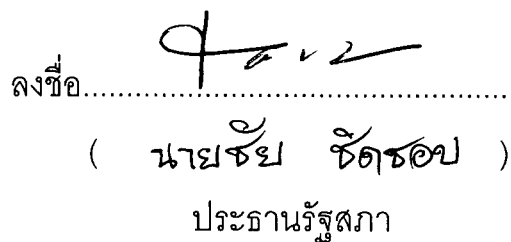 ลงชื่อ........................................
( นายชัย ชิดชอบ )
ประธานรัฐสภา